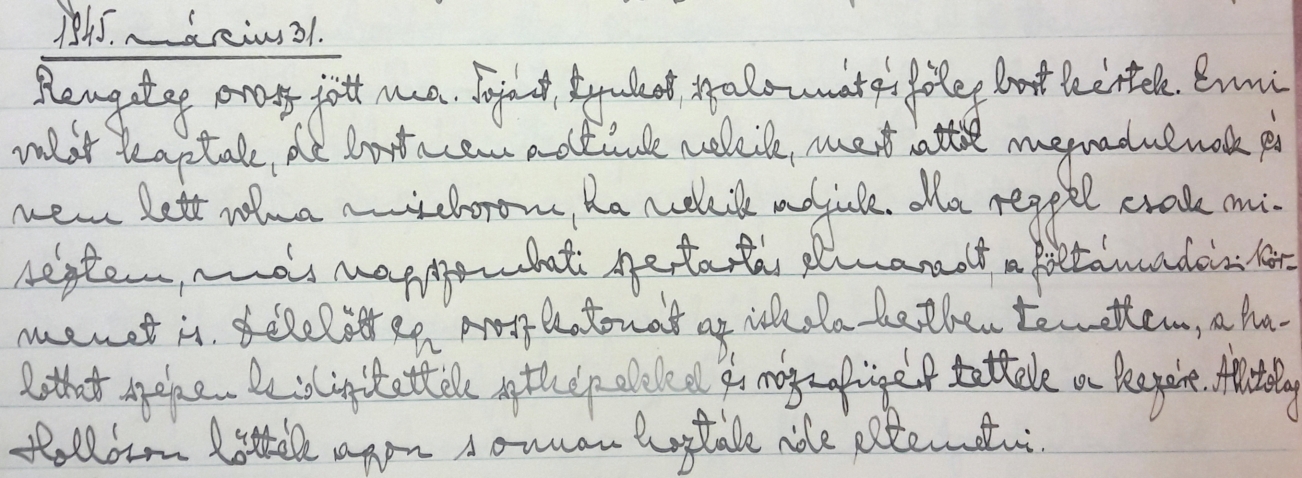 1945. március 31.
Rengeteg orosz jött ma. Tojást, tyukot, szalonnát és főleg bort kértek. Enni
valót kaptak, de bort nem adtunk nekik, mert attól megvadulnak és
nem lett volna miseborom, ha nekik adjuk. Ma reggel csak mi-
séztem, más nagyszombati szertartás elmaradt, a föltámadási kör-
menet is. Délelőtt egy orosz katonát az iskola-kertben temettem, a ha-
lottat szépen kidiszítették sztképekkel és rózsafüzért tettek a kezére. Állítólag
Hollóson lőtték agyon s onnan hozták ide eltemetni.